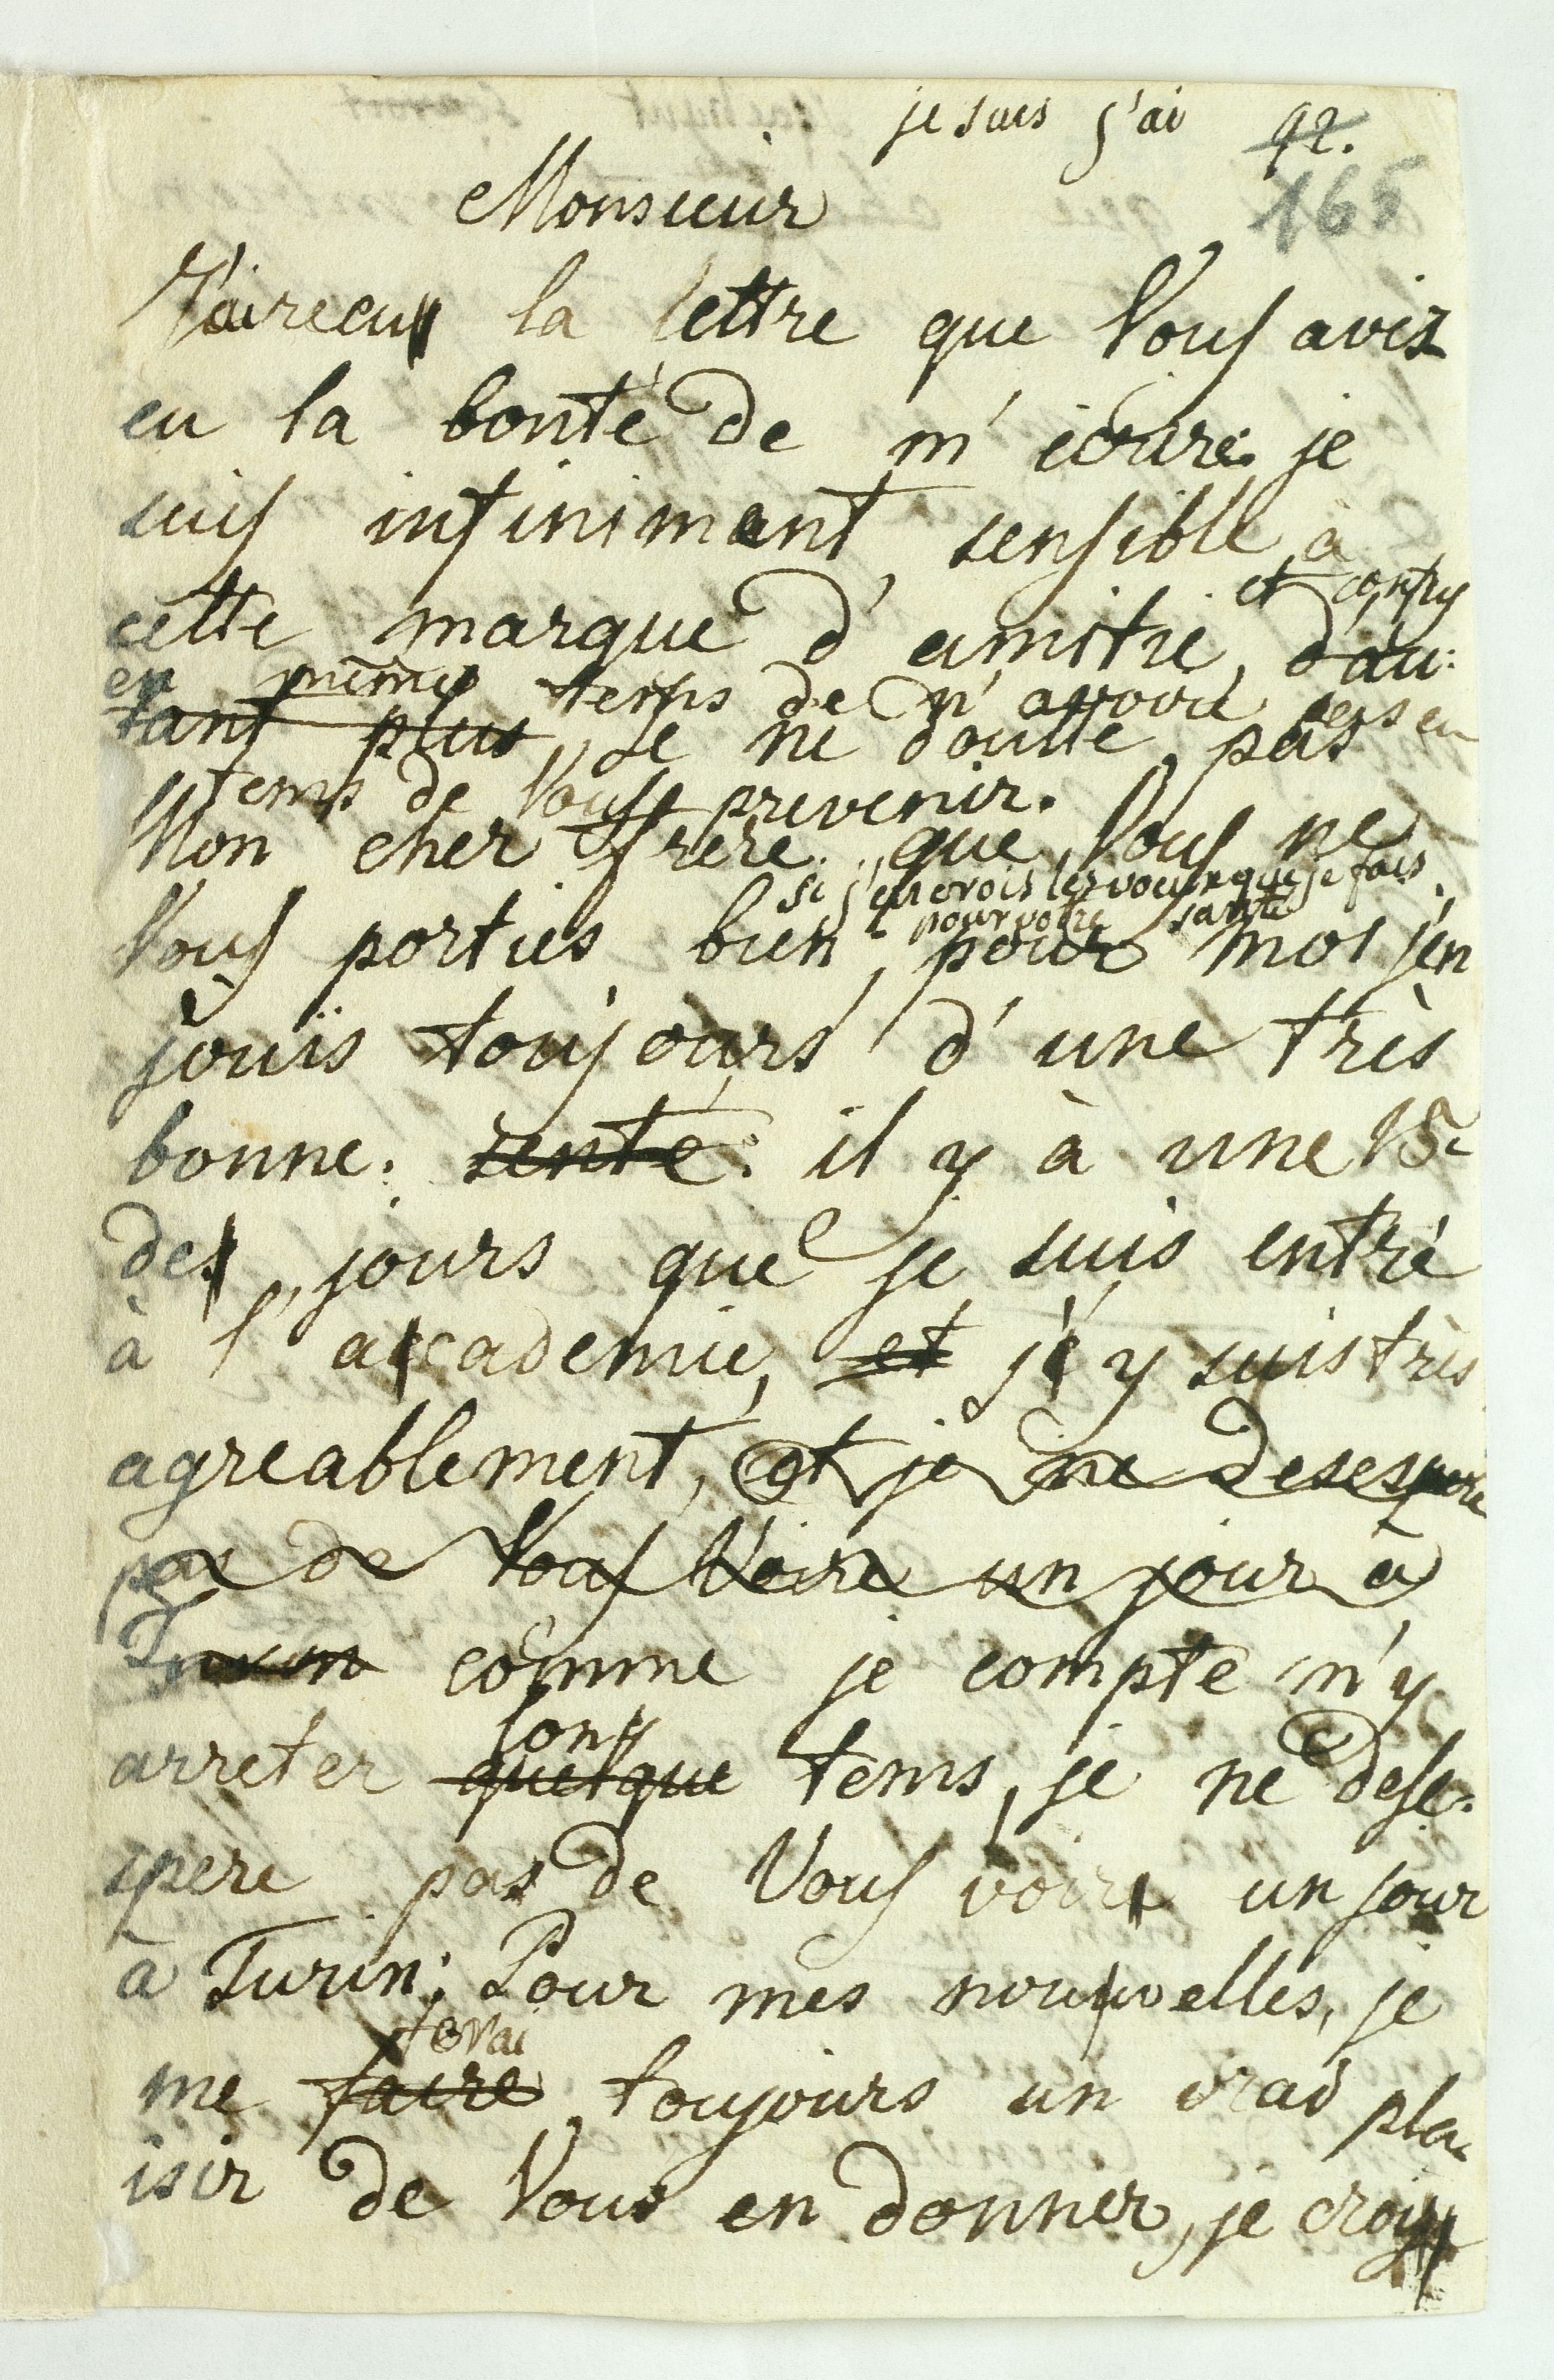 je suis j'ai 92.
165
Monsieur
J'ai recu la lettre que Vous avez
eu la bonté de m'ecrire. je
suis infiniment sensible à
et
cette marque d'amitié, d'au:
en même tems de n'avoir pas eu
tant plus, Je ne doutte pas
tems de Vous prevenir.
Mon cher frere que Vous ne
si j'en crois les voeux que je fais
pour votre santé
Vous porties bien, pour moi j'en
jouïs toujours d'une très
bonne. senté. il y à une 15e
des jours que je suis entré
à l'accademie, et j'y suis très
agreablement, et je ne desespere
pas de Vous Voire un jour à
Turin comme je compte m'y
long
arreter quelque tems, je ne dese:
spere pas de Vous voire un jour
à Turin; Pour mes nouvelles, je
ferai
me faire toujours un vrai pla
isir de Vous en donner, je croy